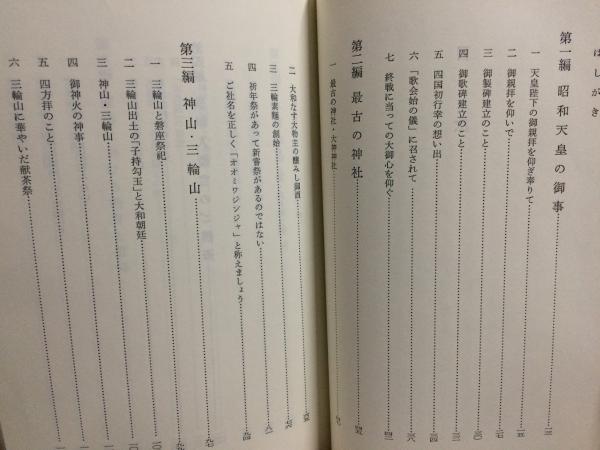 はしがき
第一編 昭和天皇の御事
一 天皇陛下の御親拝を仰ぎ奉りて
二 御親拝を仰いで
三 御製碑建立のこと
四 御歌碑建立のこと
五 四国初行幸の想い出
六 「歌会始の儀」に召されて
七 終戦に当っての大御心を仰ぐ
第二編 最古の神社
一 最古の神社・大神神社
二 大和なす大物主の醸みし御酒
三 三輪素麺の創始
四 祈年祭があって新嘗祭があるのではない
五 ご社名を正しく「オオミワジンジャ」と称えましょう
第三編 神山・三輪山
一 三輪山と磐座祭祀
二 三輪山出土の「子持勾玉」と大和朝廷
三 神山・三輪山
四 御神火の神事
五 四方拝のこと
六 三輪山に華やいだ献茶祭